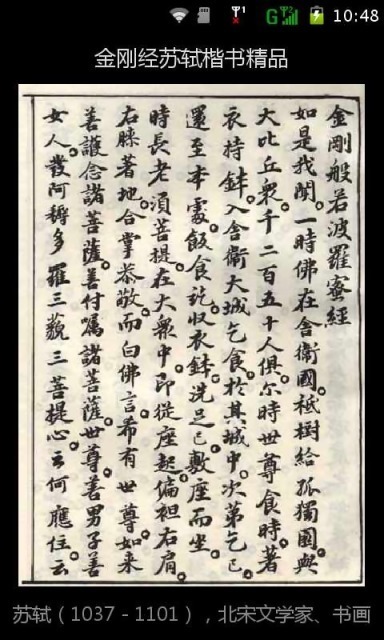 10:48
金刚经苏轼楷书精品
金剛般若波羅蜜經
如是我聞。一時佛在舍衛國。祇樹給孤獨園。與
大比丘衆千二百五十人俱。尒時世尊食時。著
衣持鉢。入舍衛大城乞食。於其城中。次第乞已。
還至本處。飯食訖。収衣鉢。洗足已。敷座而坐。
時長老湏菩提。在大衆中。即從座起。偏袒右肩。
右膝著地。合掌恭敬。而白佛言。希有世尊。如来
善護念諸菩薩。善付嘱諸菩薩。世尊。善男子善
女人。發阿耨多羅三藐三菩提心。云何應住。云
苏轼（1037 - 1101），北宋文学家、书画